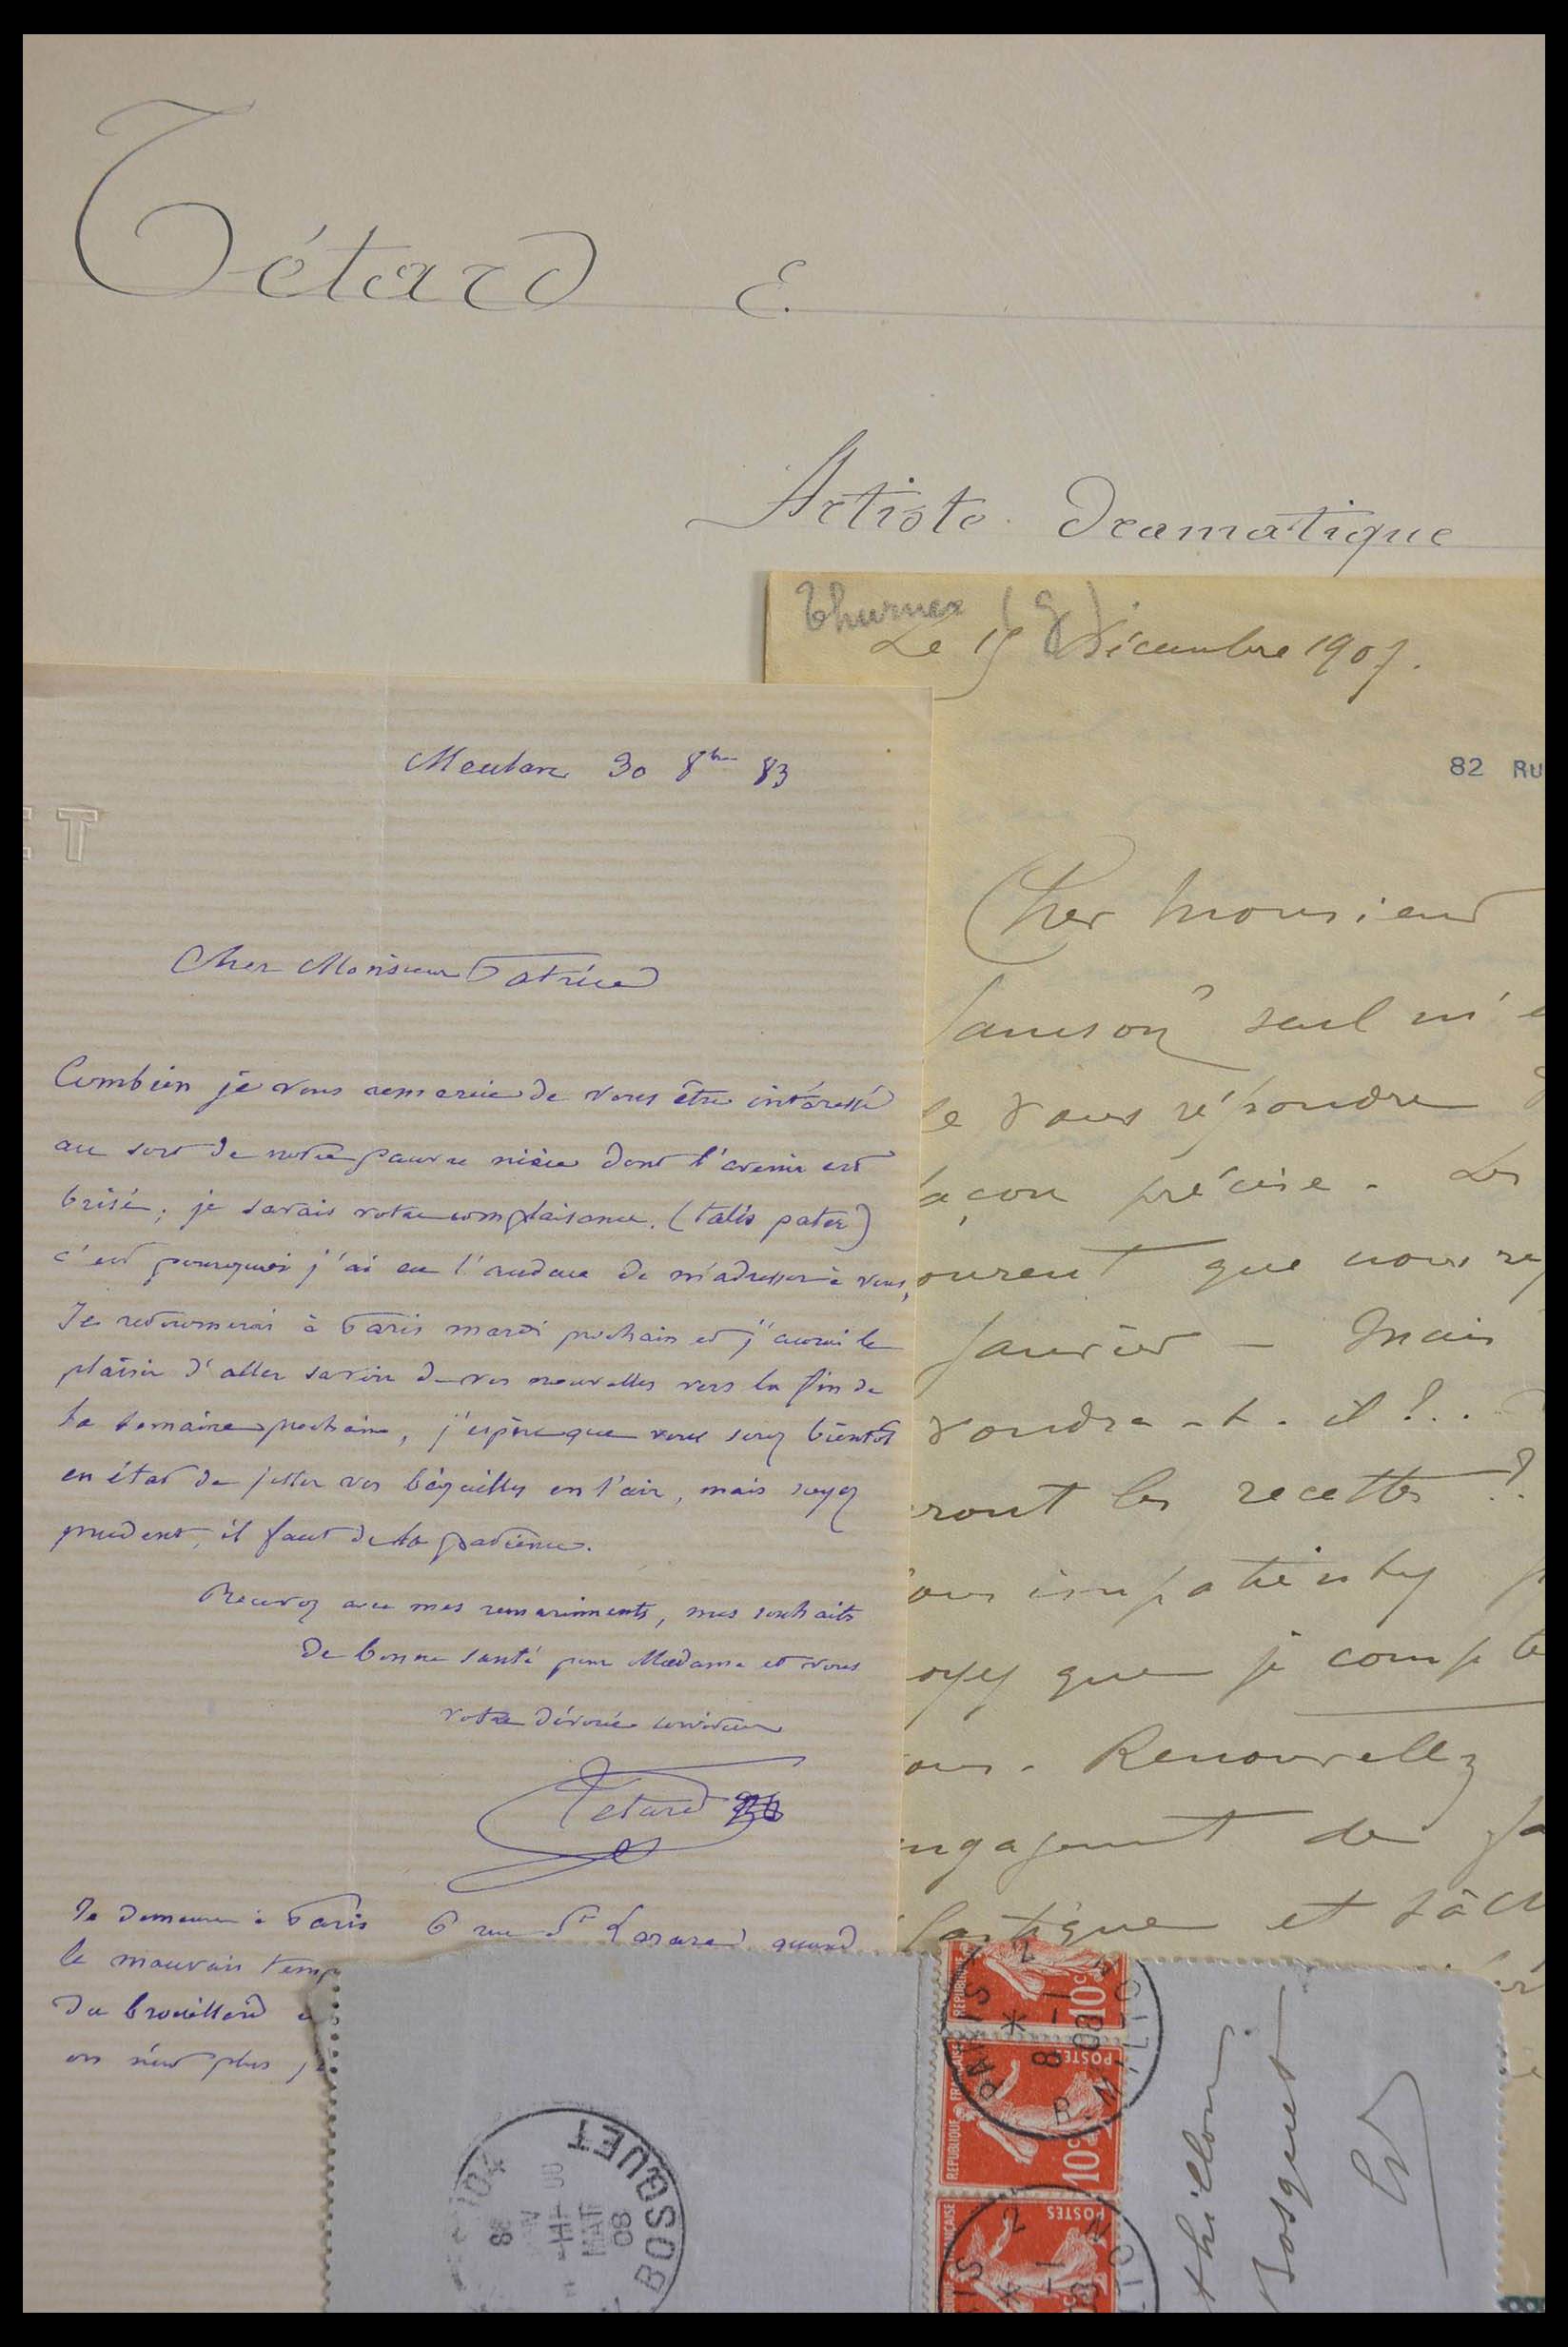 Tétard E.
Artiste Dramatique
Thurner (G)
Le 15 Décembre 1907.
82 RU
ET
Meulan 30 8bre 83
Cher Monsieur
Combien je vous remercie de vous être intéressé
au sort de notre pauvre nièce dont l'avenir est
brisé; je savais votre complaisance. (talis pater)
c'est pourquoi j'ai eu l'audace de m'adresser à vous,
Je retournerai à Paris mardi prochain et j'aurai le
plaisir d'aller savoir de vos nouvelles vers la fin de
la semaine prochaine, j'espère que vous serez bientôt
en état de jetter vos béquilles en l'air, mais soyez
prudent, il faut de la patience.
Recevez avec mes remerciments, mes souhaits
de bonne santé pour Madame et vous
votre dévoué serviteur
Tétard
Je demeure à Paris 6 rue St Lazare quand
le mauvais temp
du brouillard
on n'est plus
Cher Monsieur
Samson seul m'e
de vous répondre d
açon précise. Les
ourent que nous re
Janvier - Mais
voudra-t-il!..
ront les recettes?
ous impatientez
oyez que je compte
ous. Renouvellez
ngagement de
lastique et tâch
PARIS 2
R. MILTO
8 - 1
08
REPUBLIQUE FRANÇAISE
POSTES
10c
REPUBLIQUE FRANÇAISE
POSTES
10c
104
BOSQUET
08
thillon
Bosquet